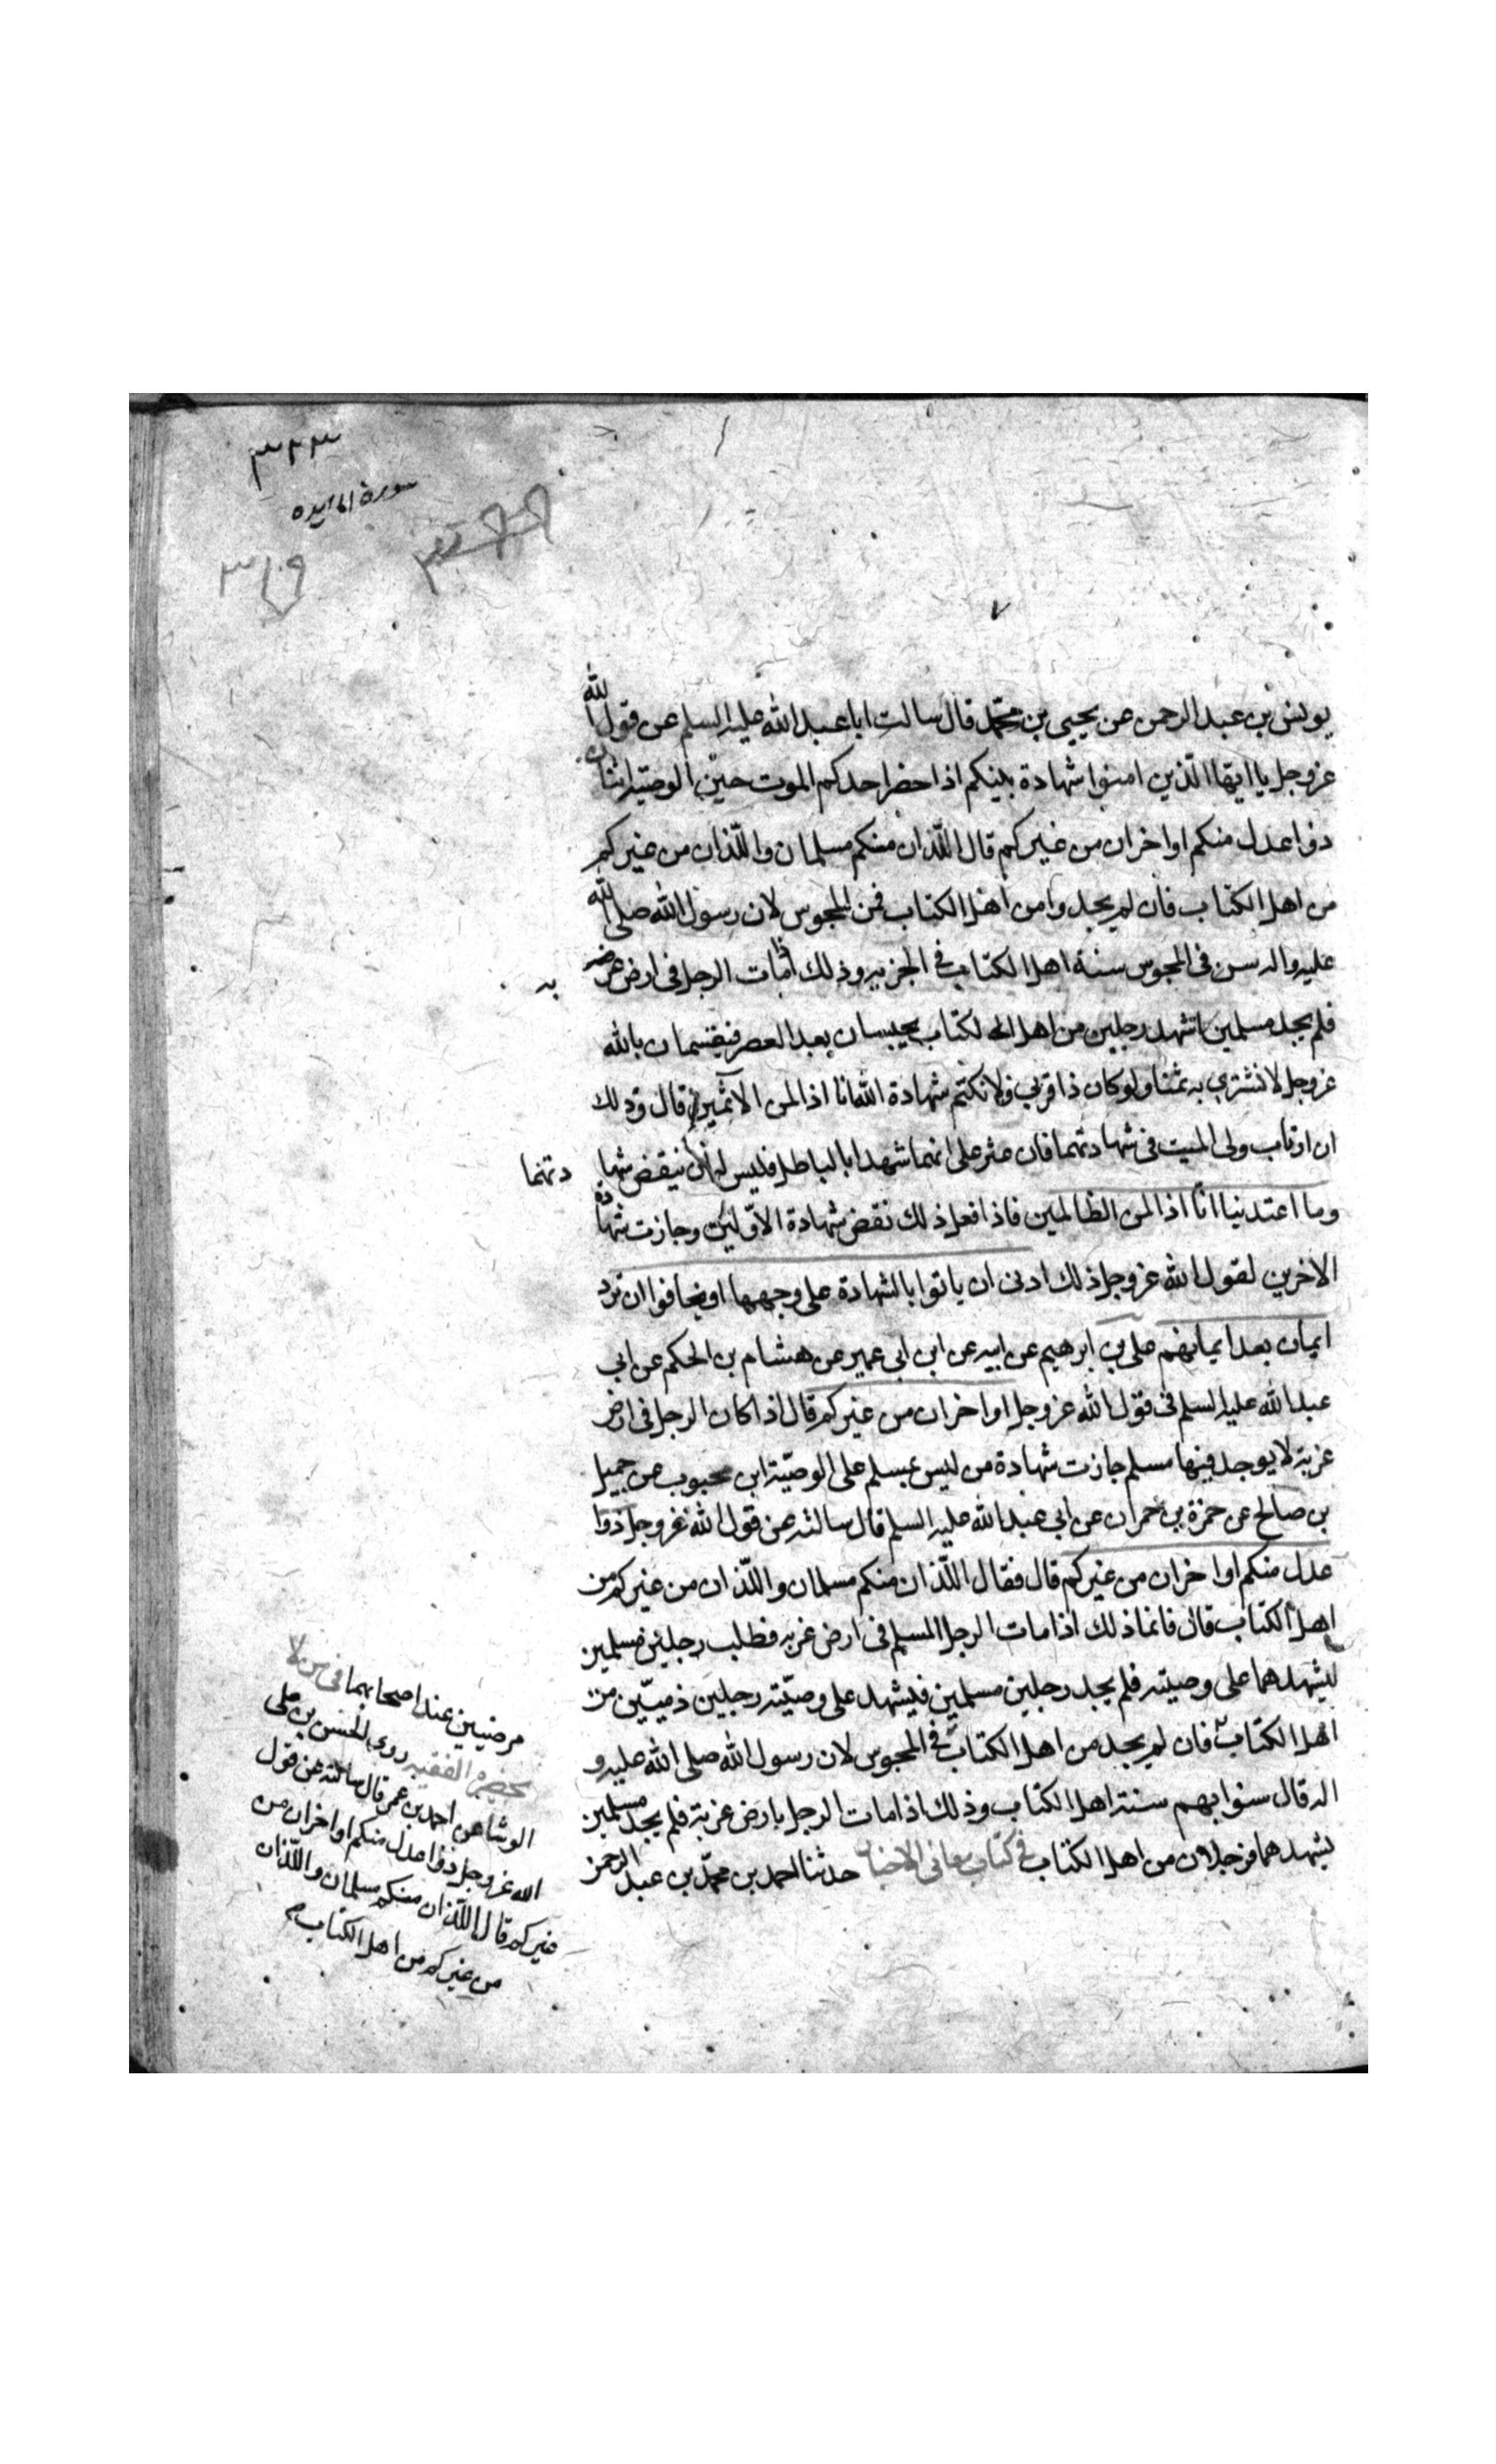 ٣٢٣
سورة المايده
٣١٩
يونس بن عبد الرحمن عن يحيى بن محمّد قال سالت ابا عبد الله عليه السلم عن قول الله
عزوجل يا ايها الّذين امنوا شهادة بينكم اذا حضر احدكم الموت حين الوصيّة اثنان
ذوا عدل منكم او اخران من غيركم قال اللّذان منكم مسلمان واللّذان من غيركم
من اهل الكتاب فان لم يجدوا من اهل الكتاب فمن المجوس لان رسول الله صلى الله
عليه واله سن فى المجوس سنة اهل الكتاب فى الجزيه وذلك اذا مات الرجل فى ارض غربه
فلم يجد مسلمين اشهد رجلين من اهل الكتاب يحبسان بعد العصر فيقسمان بالله
عزوجل لا نشترى به ثمنا ولو كان ذا قربى ولا نكتم شهادة الله انا اذا لمن الاثمين قال وذلك
ان ارتاب ولى الميت فى شهادتهما فان عثر على انهما شهدا بالباطل فليس له ان ينقض شهادتهما
وما اعتدينا انّا اذا لمن الظالمين فاذا فعل ذلك نقض شهادة الاوّلين وجازت شهادة
الاخرين لقول الله عزوجل ذلك ادنى ان ياتوا بالشهادة على وجهها او يخافوا ان ترد
ايمان بعد ايمانهم على بن ابرهيم عن ابيه عن ابن ابى عمير عن هشام بن الحكم عن ابى
عبد الله عليه السلم فى قول الله عزوجل او اخران من غيركم قال اذا كان الرجل فى ارض
غربة لا يوجد فيها مسلم جازت شهادة من ليس بمسلم على الوصيّة ابن محبوب عن جميل
بن صالح عن حمزة بن حمران عن ابى عبد الله عليه السلم قال سالته عن قول الله عزوجل ذوا
عدل منكم او اخران من غيركم قال فقال اللّذان منكم مسلمان واللّذان من غيركم من
اهل الكتاب قال فانما ذلك اذا مات الرجل المسلم فى ارض غربه فطلب رجلين مسلمين
ليشهدهما على وصيته فلم يجد رجلين مسلمين فليشهد على وصيّته رجلين ذميّين من
اهل الكتاب
مرضيين عند اصحابهما فى من لا
يحضره الفقيه روى الحسن بن على
الوشا عن احمد بن عمر قال سالته عن قول
الله عزوجل ذوا عدل منكم او اخران من
غيركم قال اللّذان منكم مسلمان واللّذان
من غيركم من اهل الكتاب
فان لم يجد من اهل الكتاب فمن المجوس لان رسول الله صلى الله عليه و
اله قال سنوا بهم سنة اهل الكتاب وذلك اذا مات الرجل بارض غربة فلم يجد مسلمين
يشهدهما فرجلان من اهل الكتاب فى كتاب معانى الاخبار حدثنا احمد بن محمّد بن عبد الرحمن